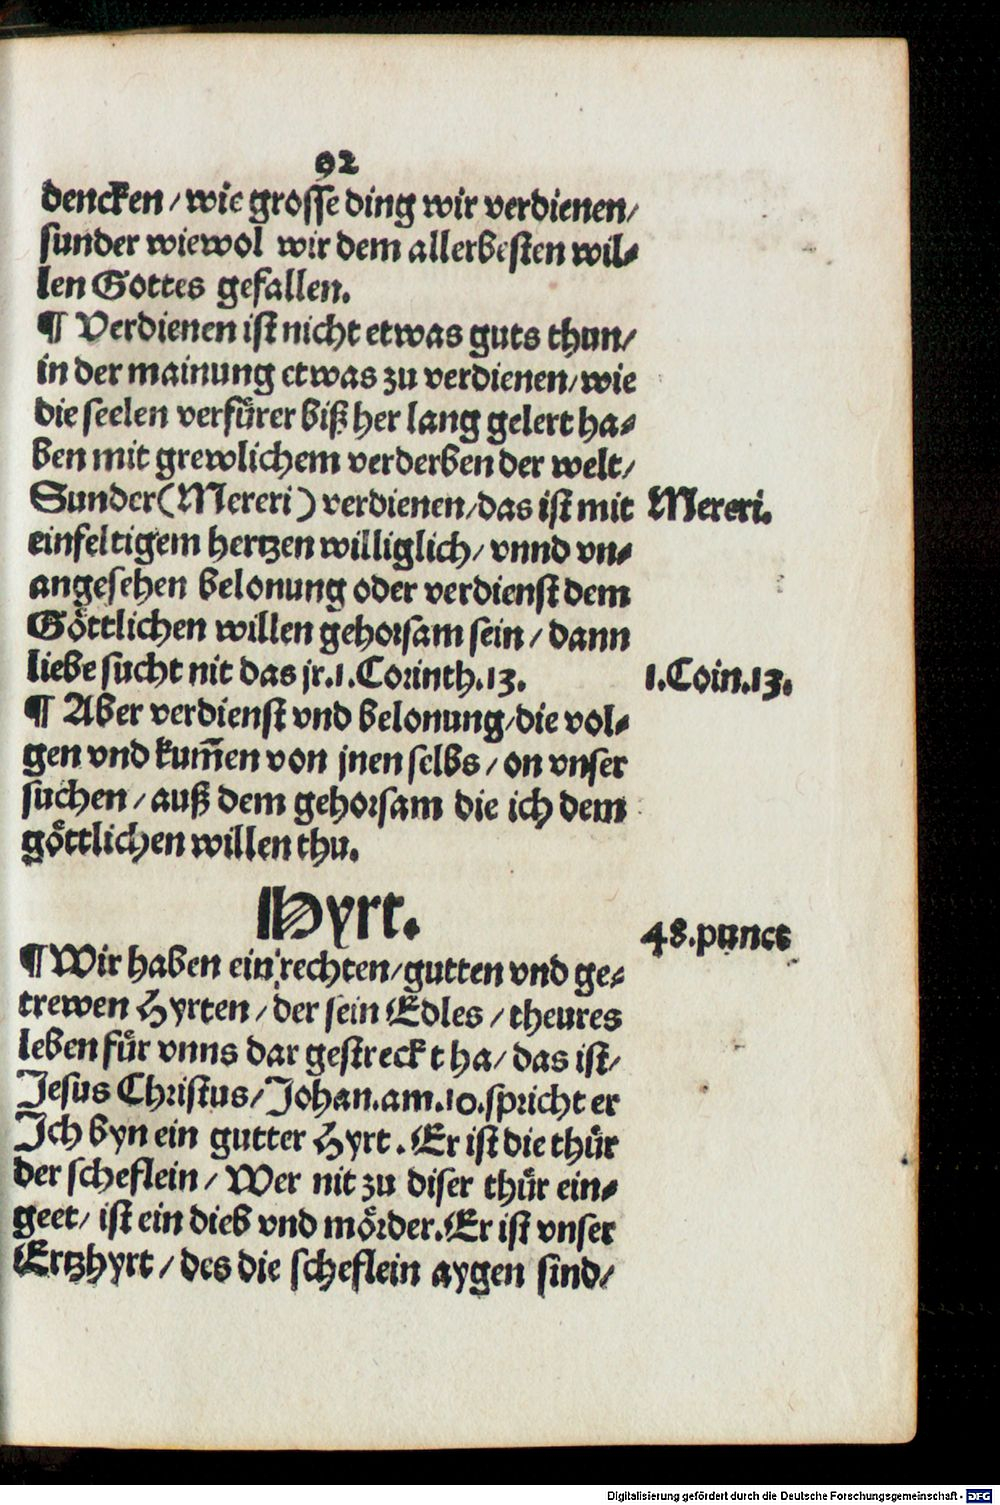 92
dencken / wie grosse ding wir verdienen /
sunder wiewol wir dem allerbesten wil⸗
len Gottes gefallen.
¶ Verdienen ist nicht etwas guts thun /
in der mainung etwas zu verdienen / wie
die seelen verfuͤrer biß her lang gelert ha⸗
ben mit grewlichem verderben der welt /
Sunder (Mereri) verdienen / das ist mit
Mereri.
einfeltigem hertzen williglich / vnnd vn⸗
angesehen belonung oder verdienst dem
Goͤttlichen willen gehorsam sein / dann
liebe sucht nit das jr. 1. Corinth. 13.
1. Coin. 13.
¶ Aber verdienst vnd belonung / die vol⸗
gen vnd kum̄en von jnen selbs / on vnser
suchen / auß dem gehorsam die ich dem
goͤttlichen willen thu.
Hyrt.
48. punct
¶ Wir haben ein rechten / gutten vnd ge⸗
trewen Hyrten / der sein Edles / theures
leben fuͤr vnns dar gestreckt ha / das ist /
Jesus Christus / Johan. am. 10. spricht er
Ich byn ein gutter Hyrt. Er ist die thuͤr
der scheflein / Wer nit zu diser thuͤr ein⸗
geet / ist ein dieb vnd moͤrder. Er ist vnser
Ertzhyrt / des die scheflein aygen sind /
Digitalisierung gefördert durch die Deutsche Forschungsgemeinschaft - DFG